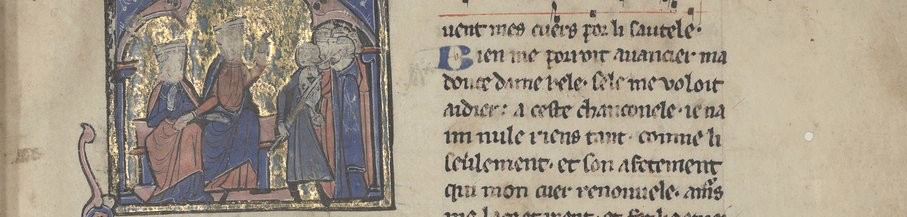 uent mes cuers por li sautele.
Bien me porroit auancier ma
douce dame bele. sele me uoloit
aidier: a ceste chanconele. ie na
im nule riens tant. comme li
seulement. et son afetement
qui mon cuer renouuele. amrs